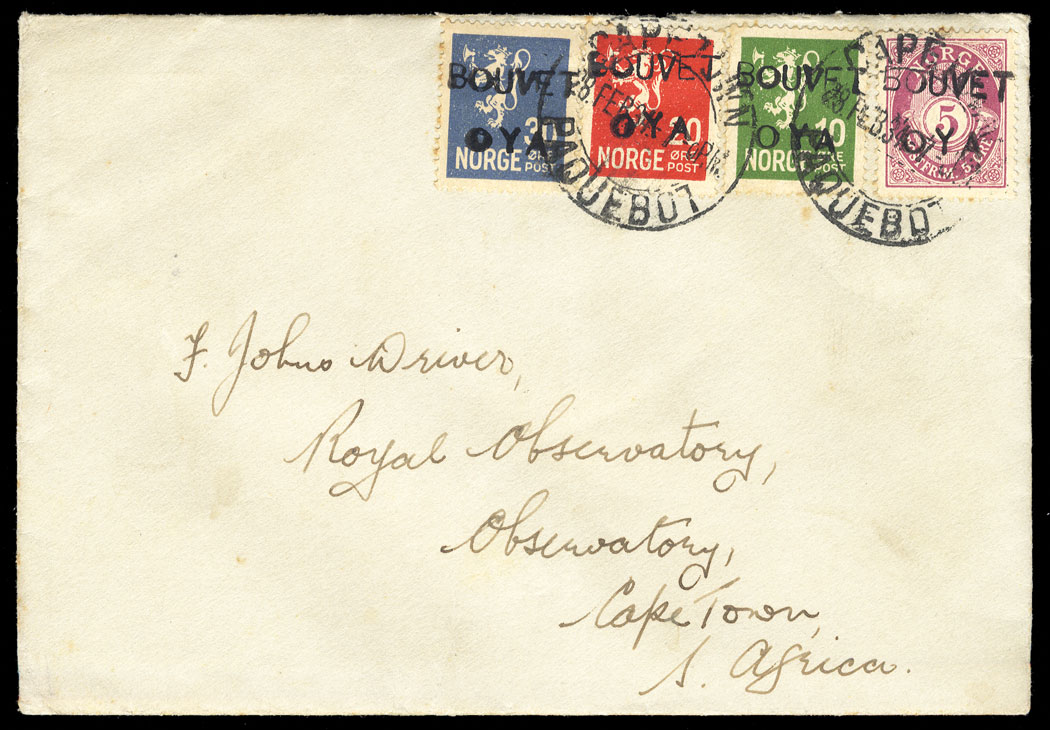 BOUVET
OYA
30
NORGE ØRE
POST
BOUVET
OYA
20
NORGE ØRE
POST
BOUVET
OYA
10
NORGE ØRE
POST
NORGE
BOUVET
5
OYA
CAPE TOWN
28 FEB 34
PAQUEBOT
CAPE
28 FEB 34
PAQUEBOT
F. Johns Driver,
Royal Observatory,
Observatory,
Cape Town,
S. Africa.